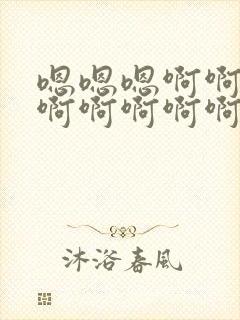 嗯嗯嗯啊啊
啊啊啊啊啊
沐浴春风